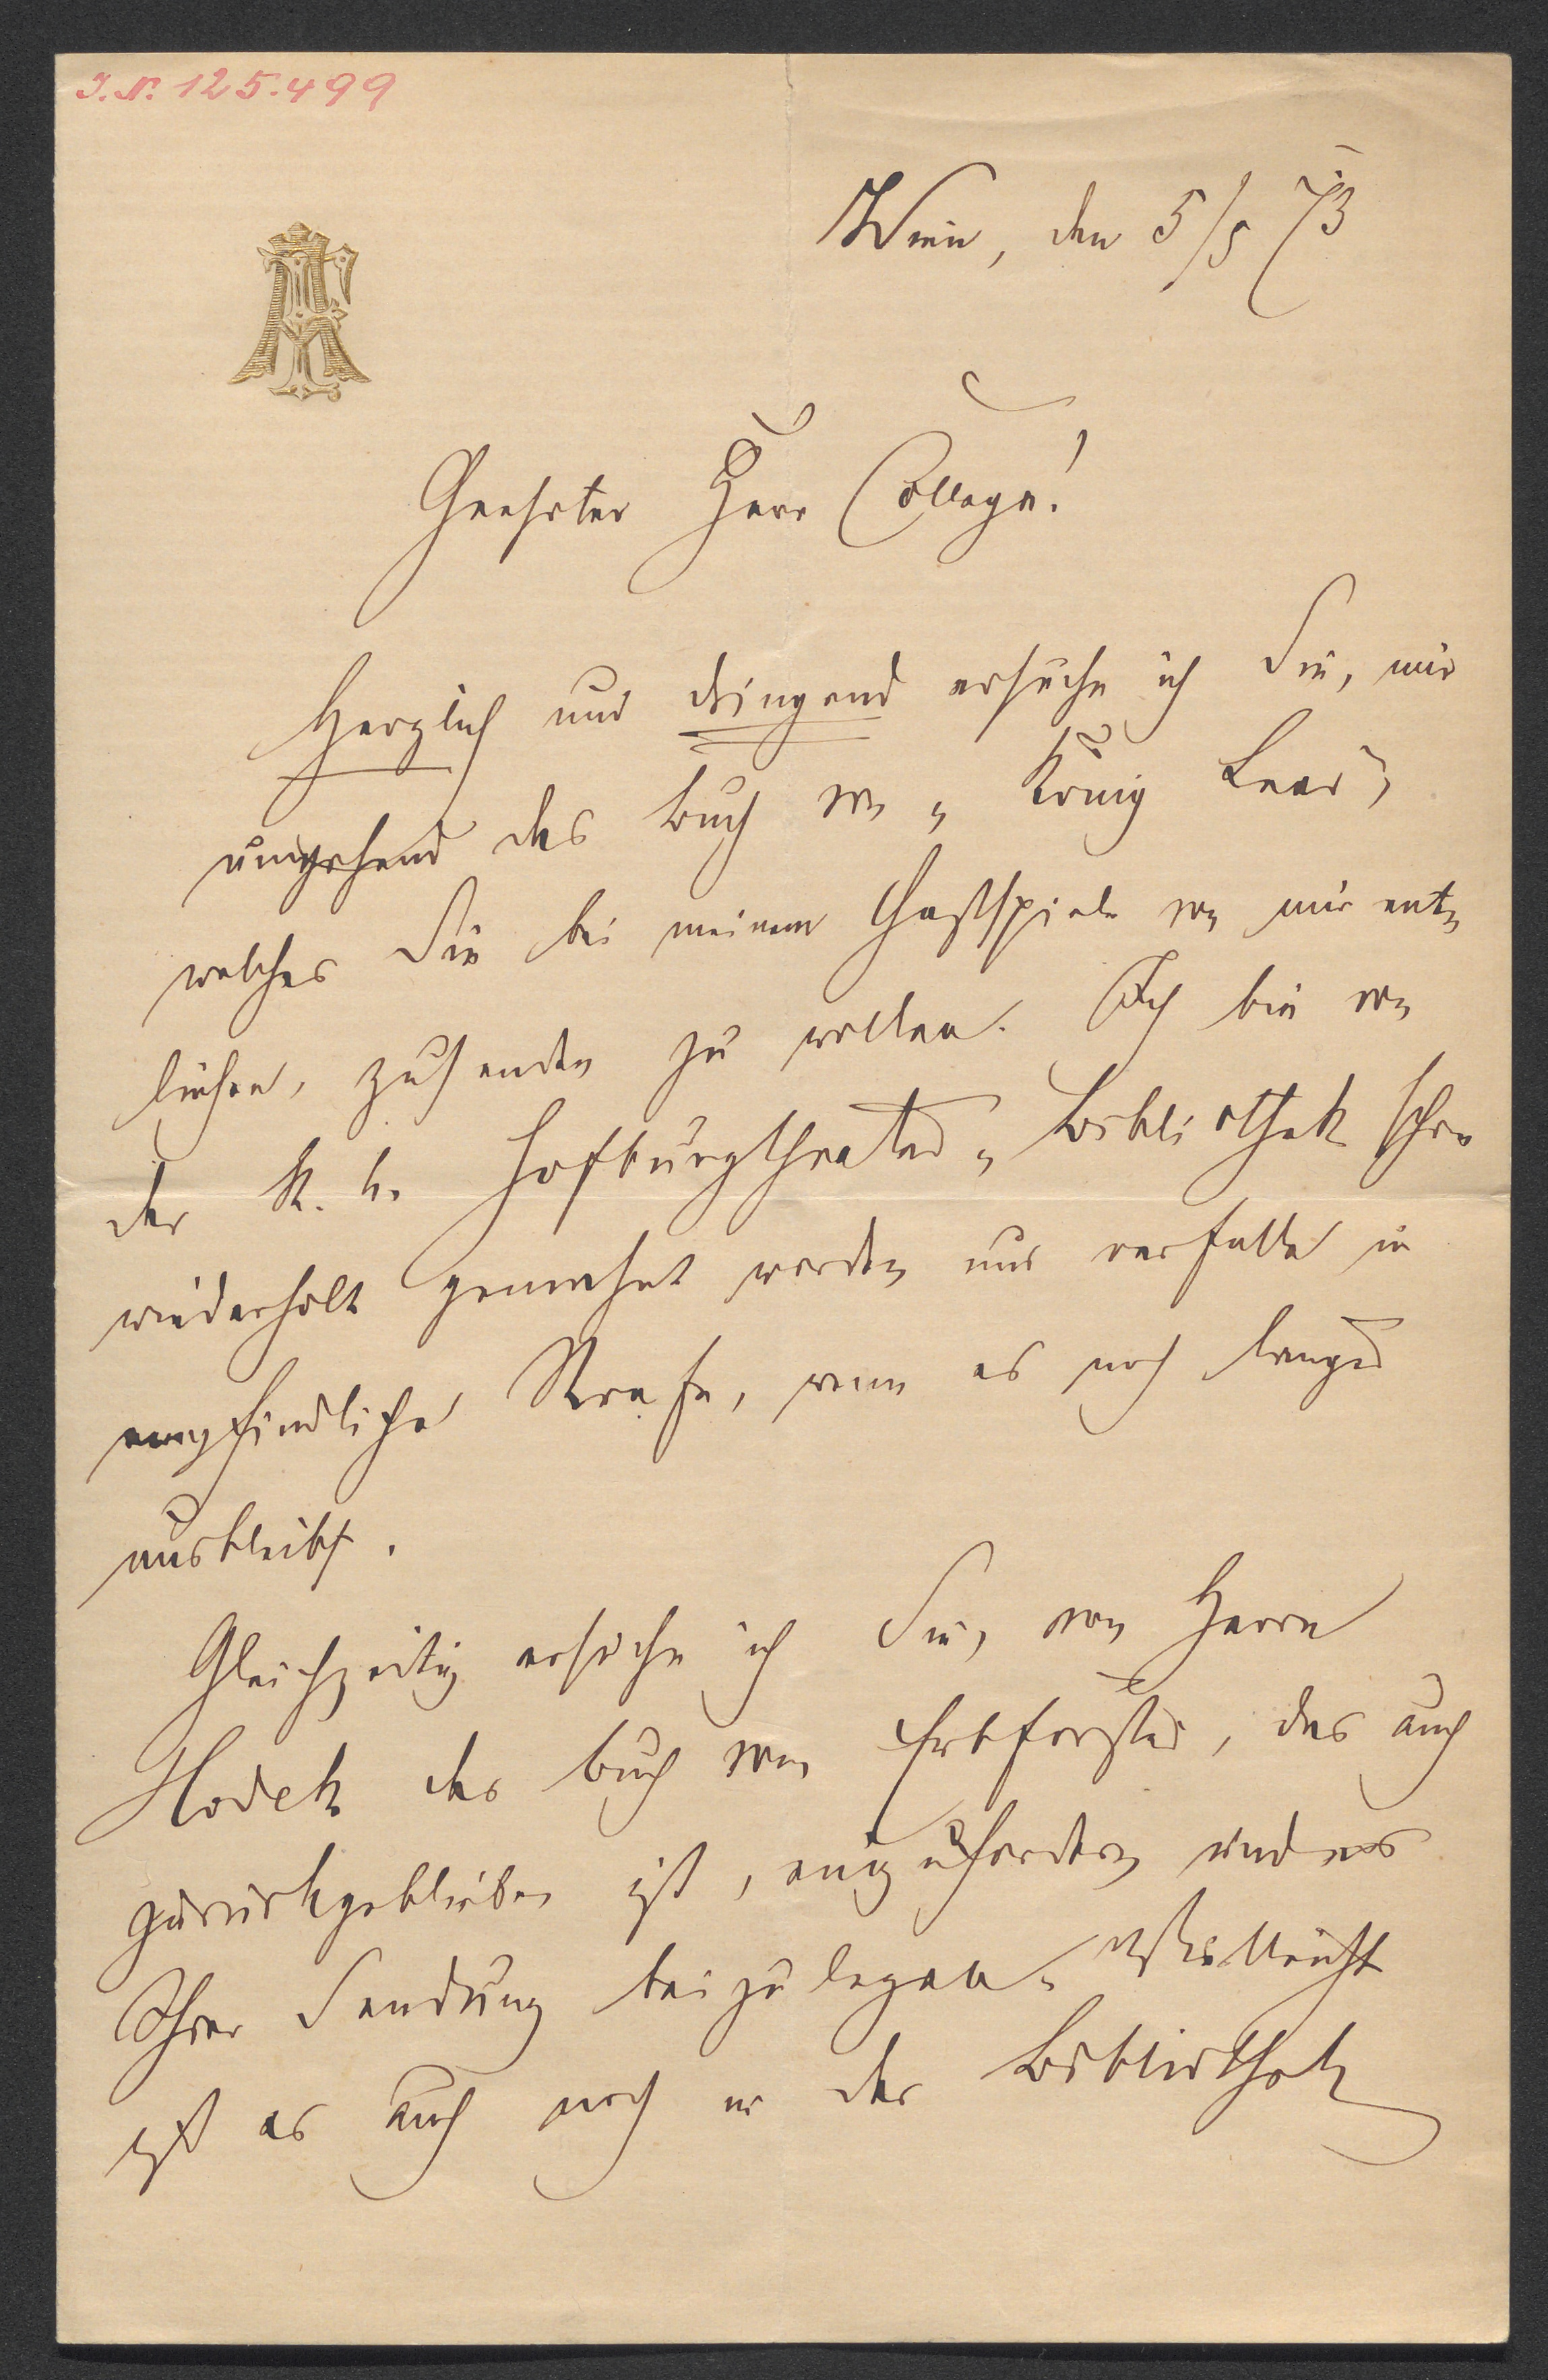 J.N. 125.499
Wien, den 5/5 73
Geehrter Herr College!
Herzlich und dringend ersuche ich Sie, mir
umgehend das Buch von „König Lear“,
welches Sie bei meinem Gastspiele von mir ent-
liehen, zusenden zu wollen. Ich bin von
der K. k. Hofburgtheater-Bibliothek schon
wiederholt gemahnt worden und verfalle in
empfindliche Strafe, wenn es noch länger
ausbleibt.
Gleichzeitig ersuche ich Sie, von Herrn
Hodek das Buch vom Erbförster, das auch
zurückgeblieben ist, einzufordern und es
Ihrer Sendung beizulegen. Vielleicht
ist es auch noch in der Bibliothek